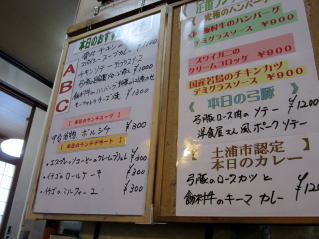 本日のおすすめ
A
B
C
チキンソテー
¥1000
¥1000
本日のランチスープ
ボルシチ
¥300
本日のランチデザート
・エスプレッソコーヒーのクレームブリュレ ¥300
・イチゴのロールケーキ ¥300
・イチゴのミルフィーユ ¥300
究極のハンバーグ
飯村牛のハンバーグ
デミグラスソース ¥900
ズワイガニの
クリームコロッケ ¥900
国産若鳥のチキンカツ
デミグラスソース ¥900
本日の弓豚
弓豚ロース肉のソテー ¥1200
洋食屋さん風ポークソテー
土浦市認定
本日のカレー
弓豚のロースカツと
飯村牛のキーマカレー ¥1200